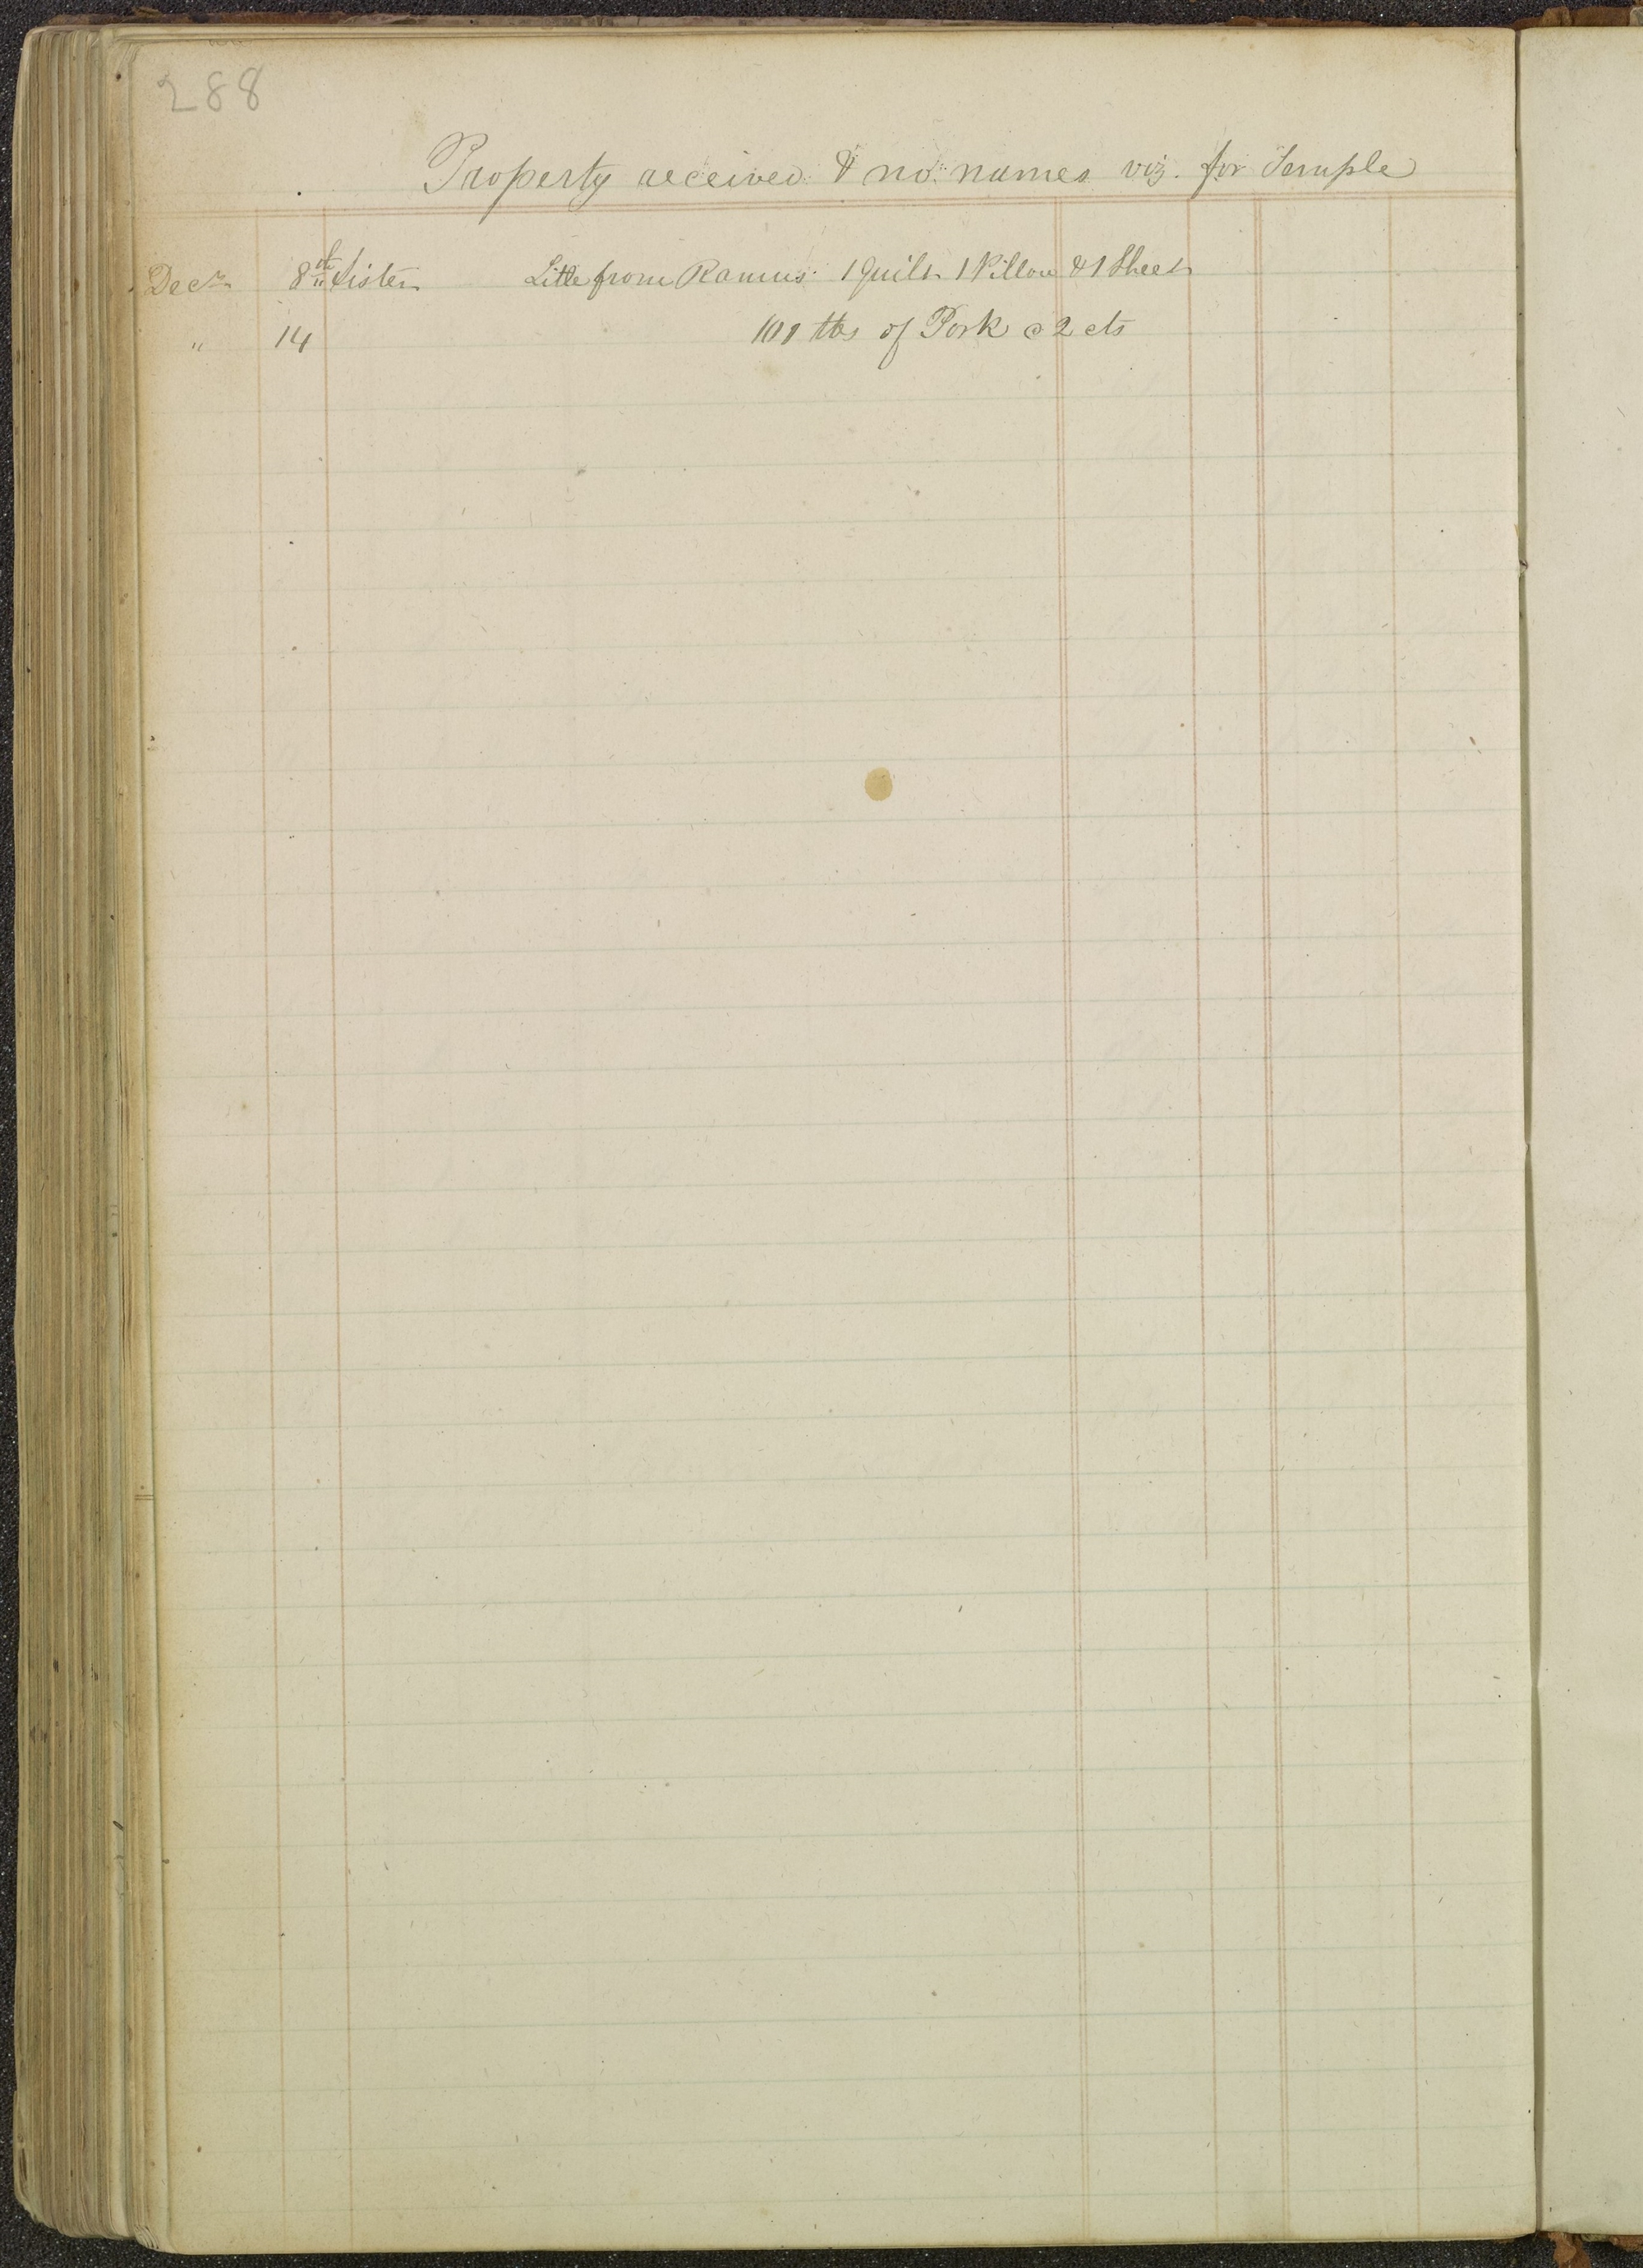 288
Property received & no names viz. for Temple
Decr 8th Sister Little from Ramus 1 Quilt 1 Pillow & 1 Sheet
" 14 101 lbs of Pork @ 2 cts